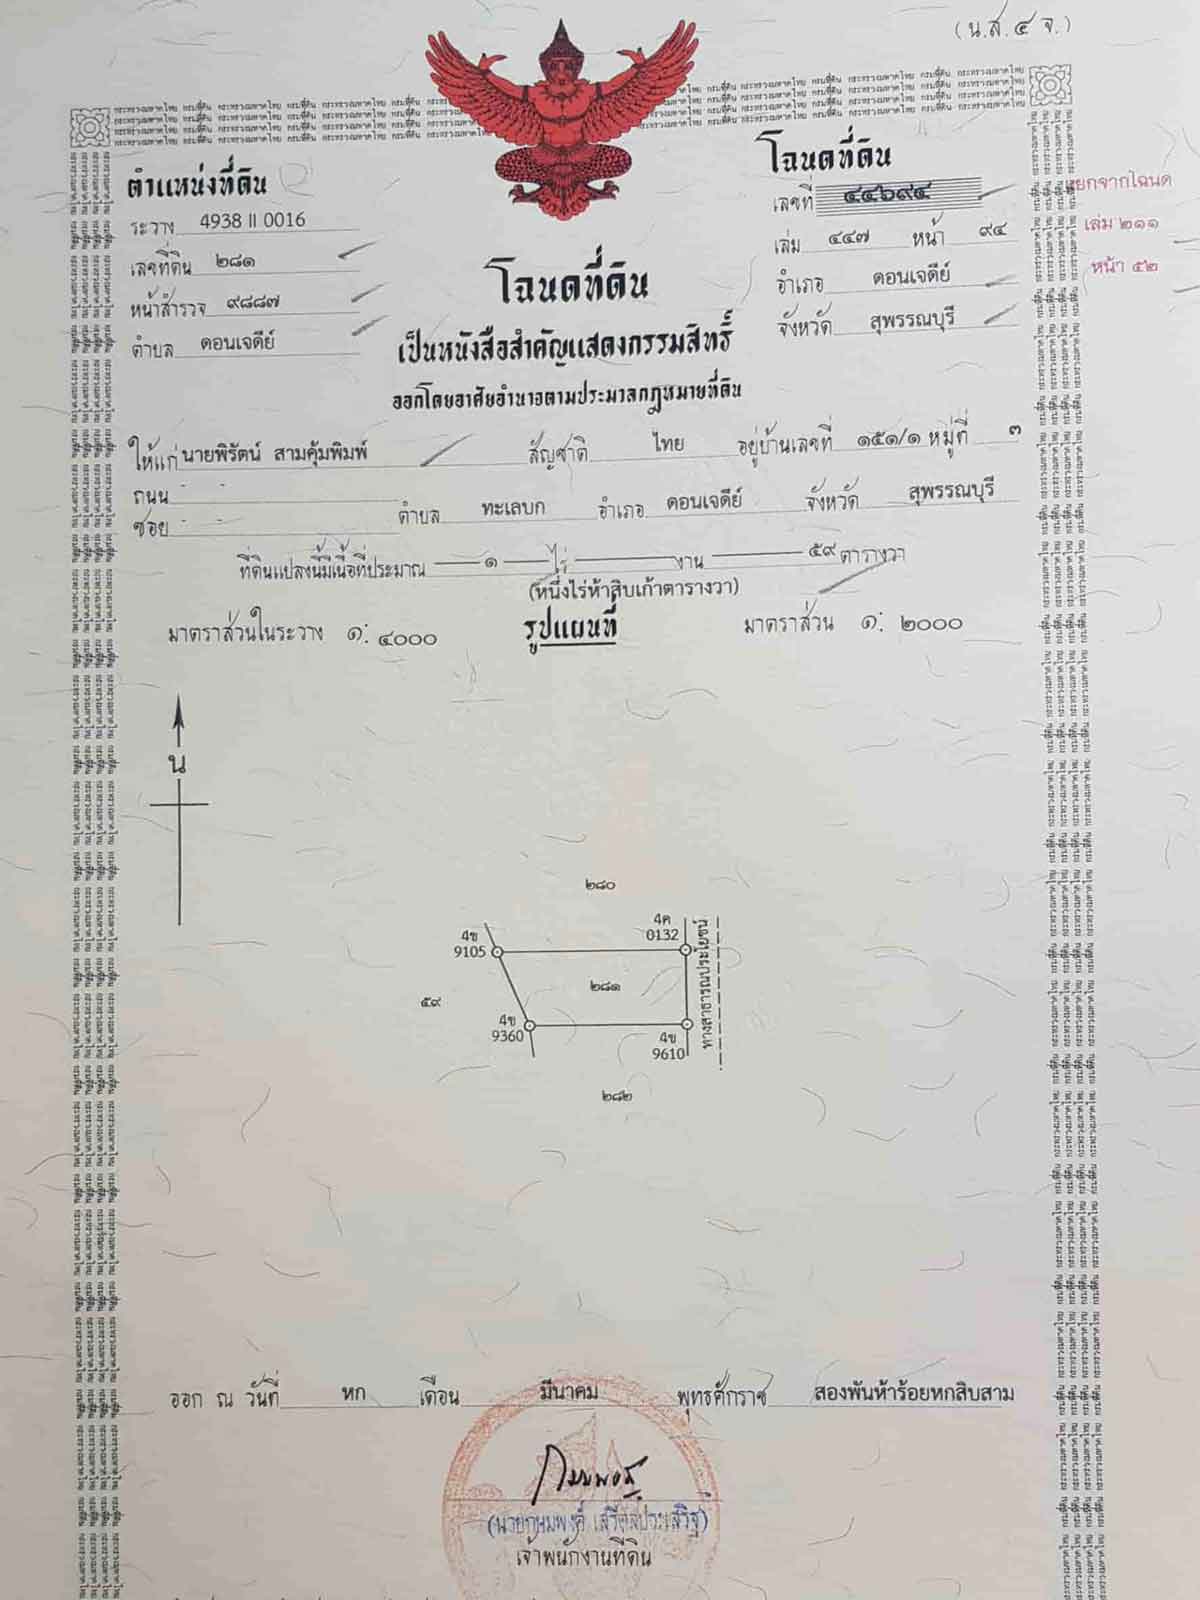 (น.ส.๔ จ.)
กระทรวงมหาดไทย กรมที่ดิน กระทรวงมหาดไทย กรมที่ดิน กระทรวงมหาดไทย กรมที่ดิน
ตำแหน่งที่ดิน
ระวาง 4938 II 0016
เลขที่ดิน ๒๘๑
หน้าสำรวจ ๙๘๘๗
ตำบล ดอนเจดีย์
โฉนดที่ดิน
เลขที่ ๔๔๖๙๔
เล่ม ๔๔๗ หน้า ๙๔
อำเภอ ดอนเจดีย์
จังหวัด สุพรรณบุรี
แยกจากโฉนด
เล่ม ๒๑๑
หน้า ๕๒
โฉนดที่ดิน
เป็นหนังสือสำคัญแสดงกรรมสิทธิ์
ออกโดยอาศัยอำนาจตามประมวลกฎหมายที่ดิน
ให้แก่ นายพิรัตน์ สามคุ้มพิมพ์ สัญชาติ ไทย อยู่บ้านเลขที่ ๑๕๑/๑ หมู่ที่ ๓
ถนน - -
ซอย - - ตำบล ทะเลบก อำเภอ ดอนเจดีย์ จังหวัด สุพรรณบุรี
ที่ดินแปลงนี้มีเนื้อที่ประมาณ ๑ ไร่ งาน ๕๙ ตารางวา
(หนึ่งไร่ห้าสิบเก้าตารางวา)
มาตราส่วนในระวาง ๑: ๔๐๐๐ รูปแผนที่ มาตราส่วน ๑: ๒๐๐๐
น
๒๘๐
4ข
9105
4ค
0132
ทางสาธารณประโยชน์
๒๘๑
๕๙
4ข
9360
4ข
9610
๒๘๒
ออก ณ วันที่ หก เดือน มีนาคม พุทธศักราช สองพันห้าร้อยหกสิบสาม
เจ้าพนักงานที่ดิน